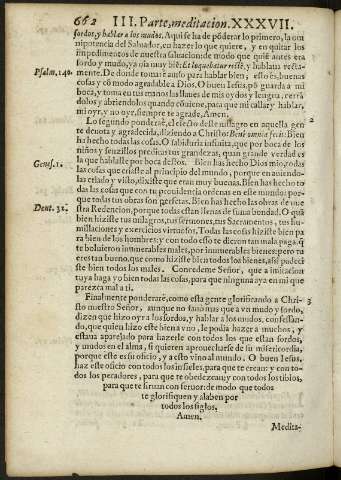 662 III. Parte, meditacion. XXXVII.
sordos, y hablar a los mudos. Aqui se ha de pōderar lo primero, la om
nipotencia del Salvador, en hazer lo que quiere, y en quitar los
impedimentos de nuestra salud, de modo que quiē antes era
sordo y mudo, ya oia muy biē. Et loquebatur rectè, y hablava recta-
Psalm. 140.
mente. De donde tomarè ansto para hablar bien; esto es, buenas
cosas y cō modo agradable a Dios. O buen Iesus, pō guarda a mi
boca, y toma en tus manos las llaves de mis oydos y lengua, cerrā
dolos y abriendolos quando conviene, para que mi callar y hablar,
mi oyr, y no oyr, siempre te agrade, Amen.
Lo segundo ponderarè, el efecto deste milagro en aquella gen
2
te devota y agradecida, diziendo a Christo: Benè omnia fecit: Bien
ha hecho todas las cosas. O sabiduria infinita, que por boca de los
niños y senzillos predicas tus grandezas, quan grande verdad es
Genes. 1.
la que hablaste por boca destos. Bien has hecho Dios mio, todas
las cosas que criaste al principio del mundo, porque en aviendo-
las criado y visto, dixiste que eran muy buenas. Bien has hecho to
das las cosas que con tu providencia ordenas en este mundo: por
que todas tus obras son perfetas. Bien has hecho las obras de nue
Deut. 32.
stra Redencion, porque todas estan llenas de suma bondad. O quā
bien hiziste tus milagros, tus sermones, tus Sacramentos, tus hu-
millaciones y exercicios virtuosos. Todas las cosas hiziste bien pa
ra bien de los hombres: y con todo esso te dieron tan mala paga, q̃
te bolvieron innumerables males, por innumerables bienes: pero tu
eres tan bueno, que como hiziste bien todos los bienes, assi padeci
ste bien todos los males. Concedeme Señor, que a imitacion
tuya haga yo bien todas las cosas, para que ninguna aya en mi que
parezca mal a ti.
Finalmente ponderarè, como esta gente glorificando a Chri-
3
sto nuestro Señor, aunque no sanò mas que a vn mudo y sordo,
dizen que hizo oyr a los sordos, y hablar a los mudos, confessan-
do, que quien hizo este bien a vno, le podia hazer a muchos, y
estava aparejado para hazerle con todos los que estan sordos,
y mudos en el alma, si quieren aprovecharse de su misericordia,
porque este es su oficio, y a esto vino al mundo. O buen Iesus,
haz este oficio con todos los infieles, para que te crean: y con to-
dos los pecadores, para que te obedezcan: y con todos los tibios,
para que te sirvan con fervor: de modo que todos
te glorifiquen y alaben por
todos los siglos,
Amen.
Medita-